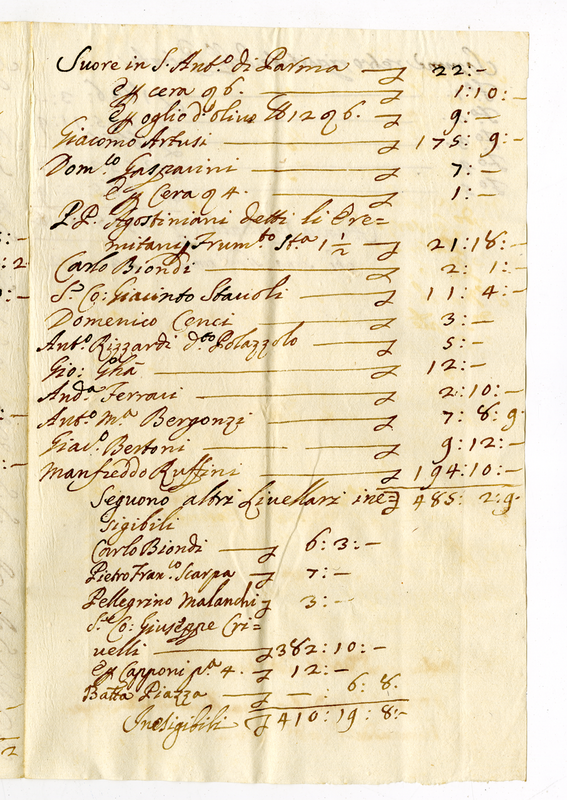 Suore in S. Ant.o di Parma — £ 22:—
£ cera q 6. — £ 1:10:—
£ oglio d'oliva lb 12 q 6. — £ 9:—
Giacomo Artusi — £ 175: 9:—
Dom.co Gasparini — £ 7:—
£ Cera q 4. — £ 1:—
P.P. Agostiniani detti li Ere=
mitani, Frum.to St.a 1 1/2 — £ 21:18:—
Carlo Biondi — £ 2: 1:—
S.r Co: Giacinto Stavoli — £ 11: 4:—
Domenico Cenci — £ 3:—
Ant.o Rizzardi d.to Polazzolo — £ 5:—
Gio: — £ 12:—
And.a Ferrari — £ 2:10:—
Ant.o M.a Bergonzi — £ 7: 8: 9
Giac.o Bertoni — £ 9:12:—
Manfreddo Ruffini — £ 194:10:—
Seguono altri Livellarj ine= £ 485: 2:9
sigibili
Carlo Biondi — £ 6: 3:—
Pietro Fran.co Scarpa — £ 7:—
Pellegrino Malanchi £ 3:—
S.r Co: Giuseppe Cri=
velli — £ 382:10:—
£ Capponi p.a 4. — £ 12:—
Batta Piazza — £ —: 6: 8.
Inesigibili £ 410:19:8:—
2